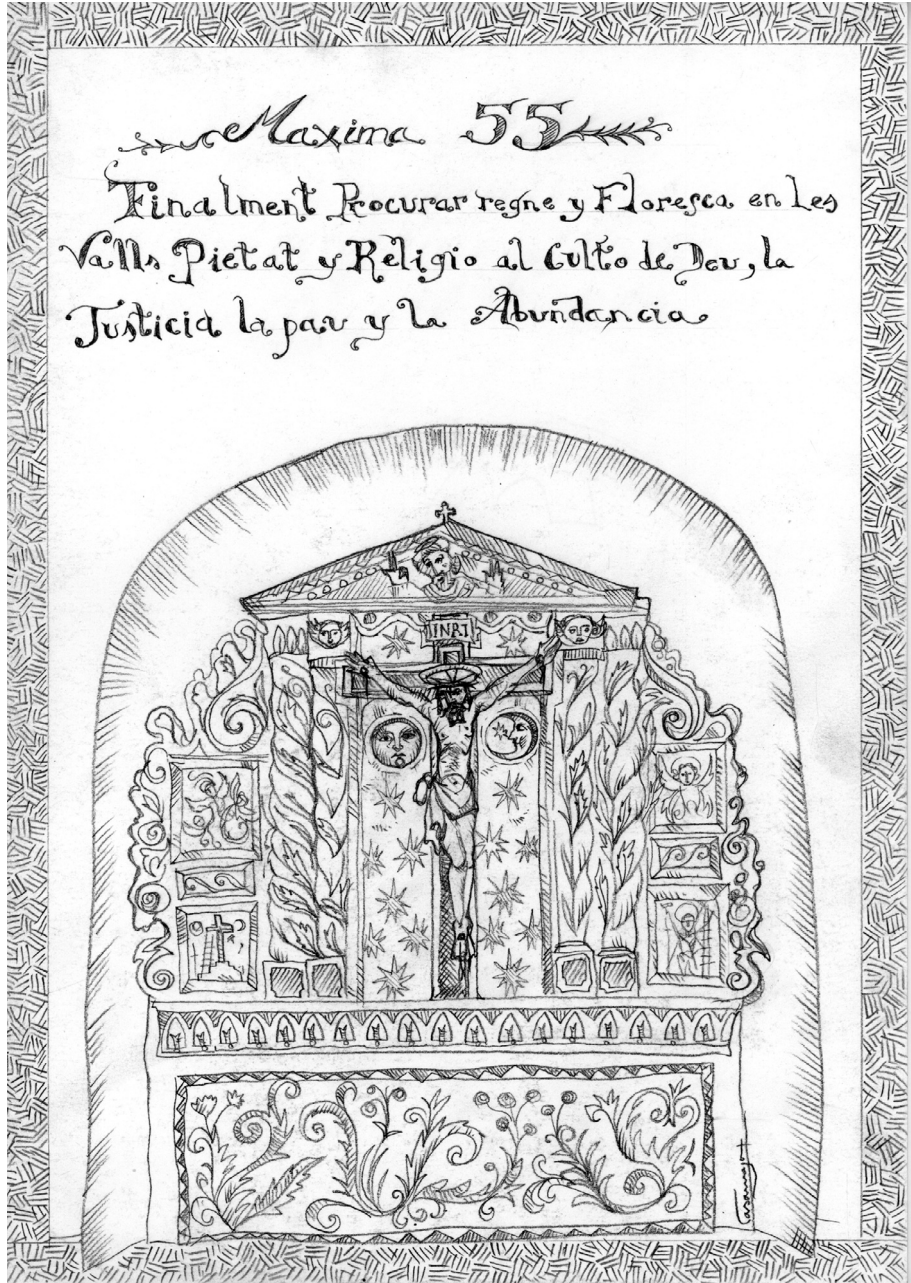 Maxima 55
Finalment Procurar regne y Floresca en Les
Valls Pietat y Religio al Culto de Deu, la
Justicia la pau y la Abundancia
INRI